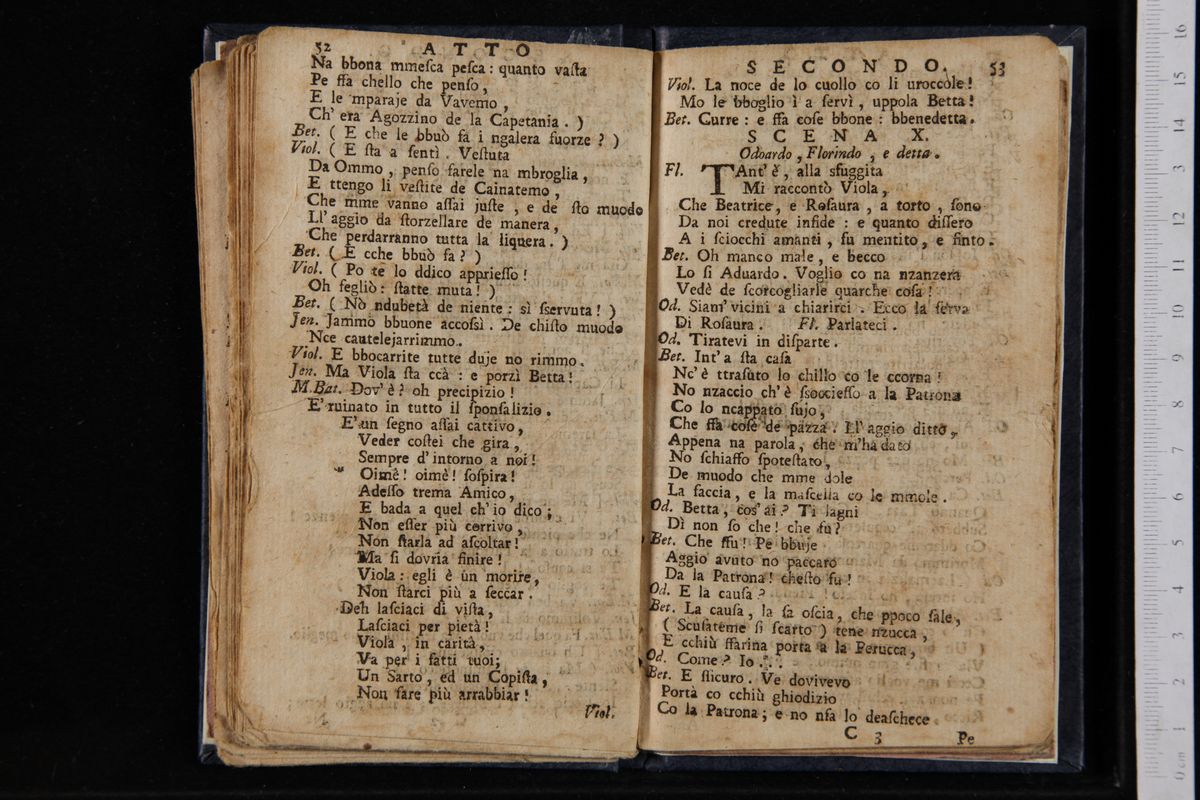 52 ATTO
Na bbona mmesca pesca: quanto vasta
Pe ffa chello che penso,
E le 'mparaje da Vavemo,
Ch' era Agozzino de la Capetania. )
Bet. ( E che le bbuò fa i ngalera fuorze? )
Viol. ( E sta a sentì. Vestuta
Da Ommo, penso farele na mbroglia,
E ttengo li vestite de Cainatemo,
Che mme vanno assai juste, e de sto muodo
Ll' aggio da storzellare de manera,
Che perdarranno tutta la liquera. )
Bet. ( E cche bbuò fa? )
Viol. ( Po te lo ddico appriesso!
Oh fegliò: statte muta! )
Bet. ( Nò ndubetà de niente: sì sservuta! )
Jen. Jammo bbuone accossì. De chisto muodo
Nce cautelejarrimmo.
Viol. E bbocarrite tutte duje no rimmo.
Jen. Ma Viola sta ccà: e porzì Betta!
M.Bat. Dov' è? oh precipizio!
E' ruinato in tutto il sponsalizio.
E' un segno assai cattivo,
Veder costei che gira,
Sempre d' intorno a noi!
Oimè! oimè! sospira!
Adesso trema Amico,
E bada a quel ch' io dico;
Non esser più corrivo,
Non starla ad ascoltar!
Ma si dovria finire!
Viola: egli è un morire,
Non starci più a seccar.
Deh lasciaci di vista,
Lasciaci per pietà!
Viola, in carità,
Va per i fatti tuoi;
Un Sarto, ed un Copista,
Non fare più arrabbiar!
Viol.
SECONDO. 53
Viol. La noce de lo cuollo co li uroccole!
Mo le bboglio ì a servì, uppola Betta!
Bet. Curre: e ffa cose bbone: bbenedetta.
SCENA X.
Odoardo, Florindo, e detta.
Fl. TAnt' è, alla sfuggita
Mi raccontò Viola,
Che Beatrice, e Rosaura, a torto, sono
Da noi credute infide: e quanto dissero
A i sciocchi amanti, fu mentito, e finto.
Bet. Oh manco male, e becco
Lo si Aduardo. Voglio co na nzanzera
Vedè de scorcogliarle quarche cosa!
Od. Siam' vicini a chiarirci. Ecco la serva
Di Rosaura. Fl. Parlateci.
Od. Tiratevi in disparte.
Bet. Int' a sta casa
Nc' è ttrasuto lo chillo co le ccorna!
No nzaccio ch' è ssocciesso a la Patrona
Co lo ncappato sujo,
Che ffa cose de pazza. Ll' aggio ditto,
Appena na parola, che m'ha dato
No schiaffo spotestato,
De muodo che mme dole
La faccia, e la mascella co le mmole.
Od. Betta, cos' ai? Ti lagni
Dì non so che! che fu?
Bet. Che ffu! Pe bbuje
Aggio avuto no paccaro
Da la Patrona! chesto fu!
Od. E la causa?
Bet. La causa, la sa oscia, che ppoco sale,
( Scusateme si scarto ) tene nzucca,
E cchiù ffarina porta a la Perucca,
Od. Come? Io . . .
Bet. E ssicuro. Ve dovivevo
Portà co cchiù ghiodizio
Co la Patrona; e no nsa lo deaschece
C 3 Pe